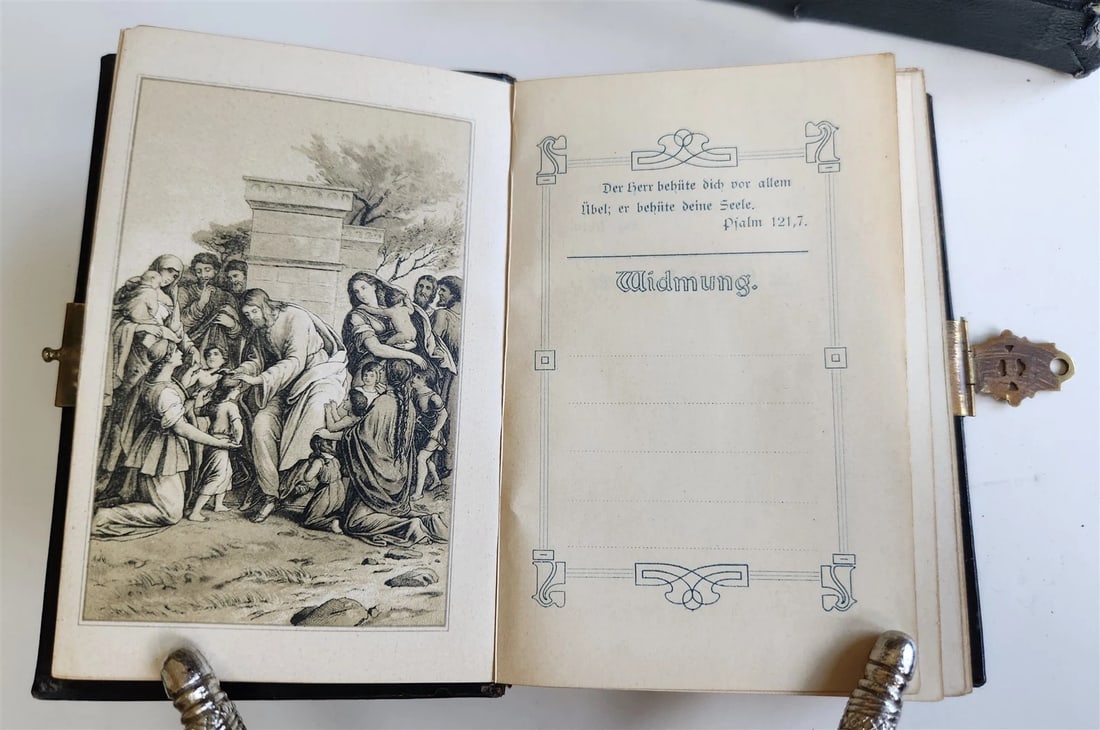 Der Herr behüte dich vor allem
Übel; er behüte deine Seele.
Psalm 121,7.
Widmung.